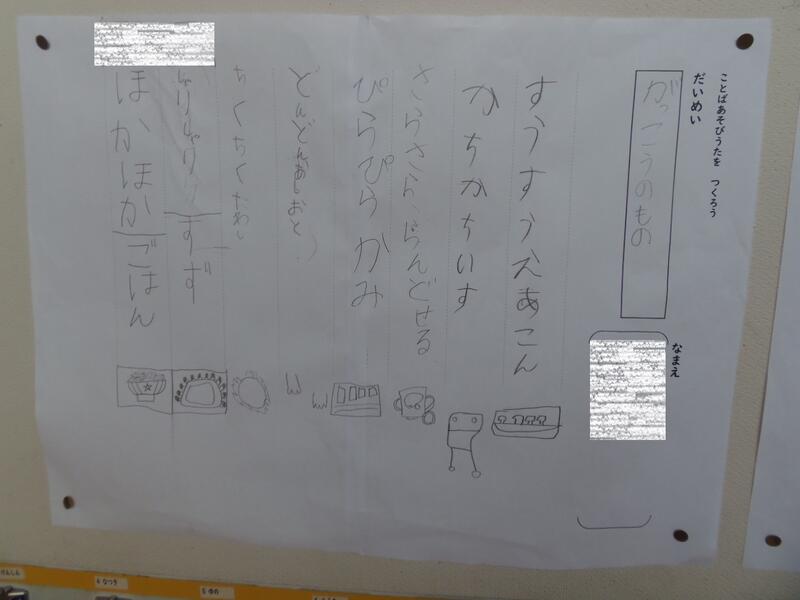 ことばあそびうたを つくろう
だいめい
がっこうのもの
なまえ
すうすうえあこん
かちかちいす
さらさら、らんどせる
ぴらぴらかみ
どんどんあしおと
ちくちくたわし
すず
ほかほかごはん
けんしん
4 なつき
5 ゆの